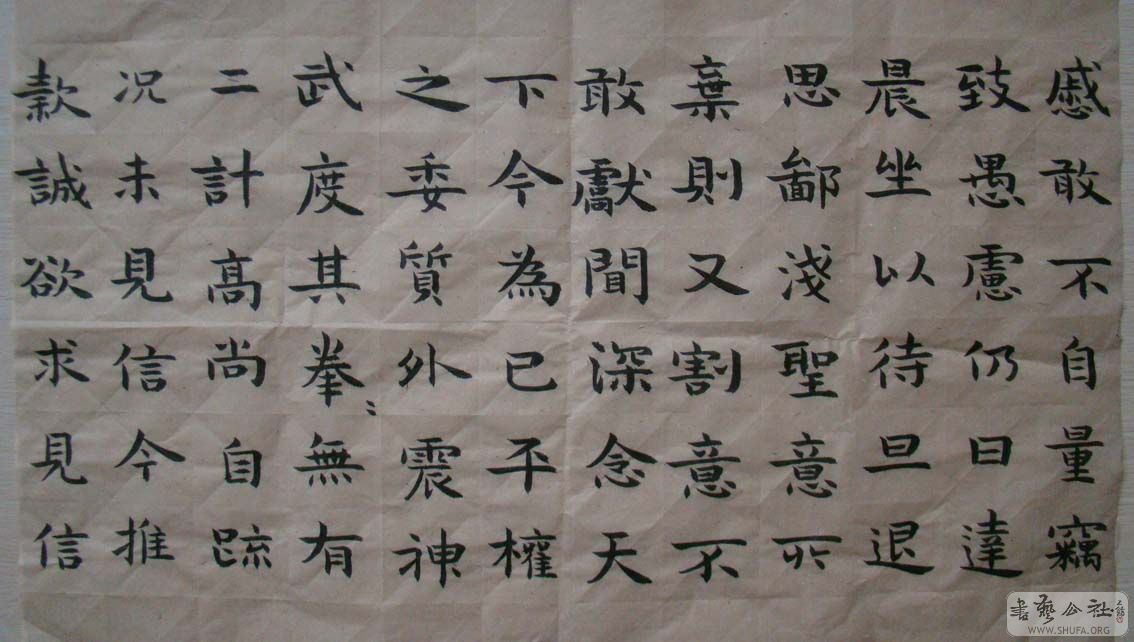 戚敢不自量竊
致愚慮仍曰達
晨坐以待旦退
思鄙淺聖意所
棄則又割意不
敢獻聞深念天
下今為已平權
之委質外震神
武度其拳〻無有
二計高尚自䟽
况未見信今推
款誠欲求見信
書藝公社
WWW.SHUFA.ORG